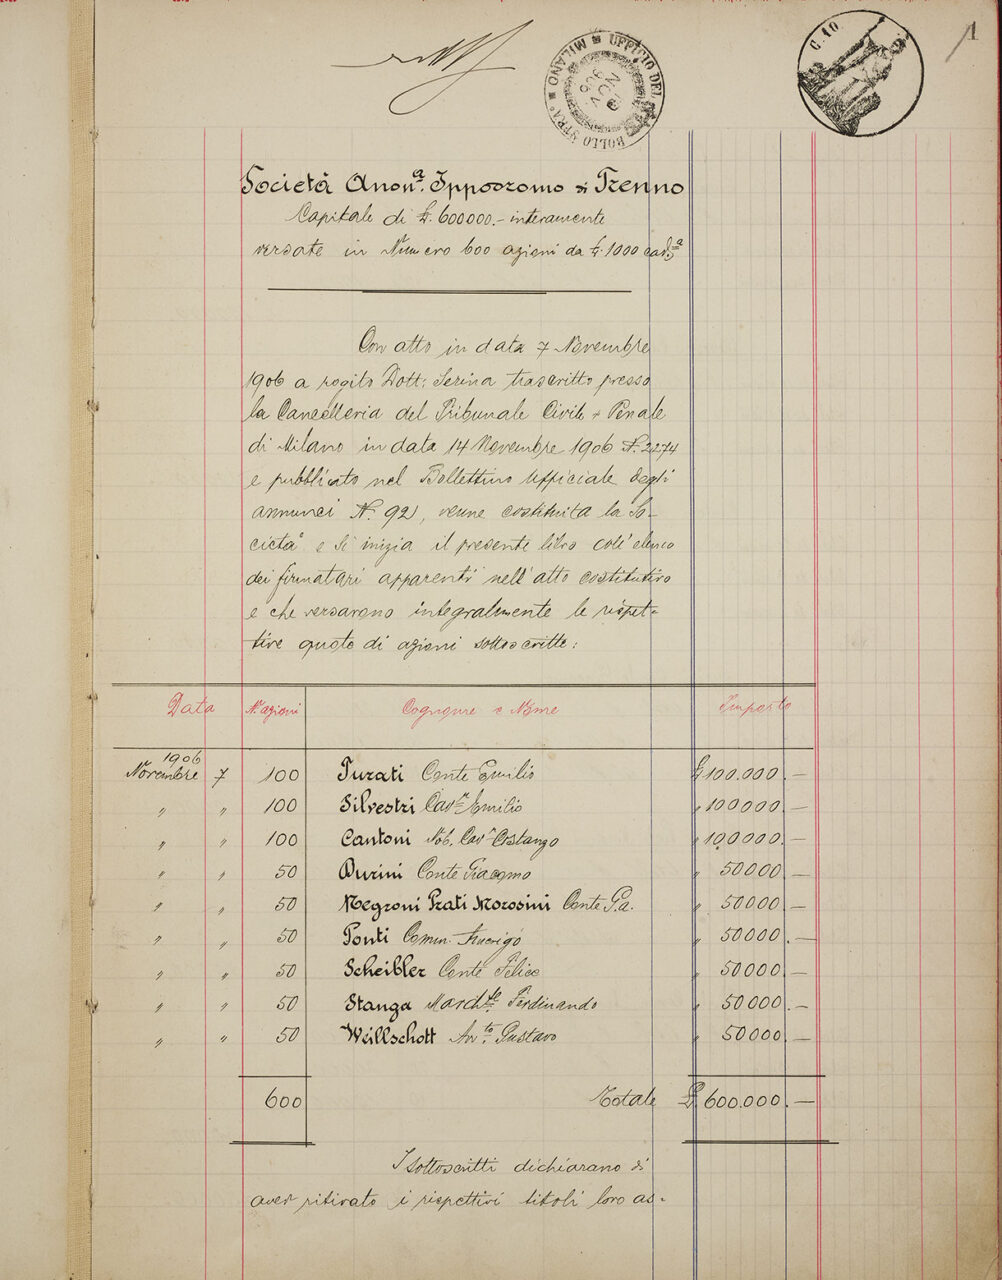 1
C. 10
MILANO * UFFICIO DEL BOLLO STRA° *
7 NOV 906
Società Anonª. Ippodromo di Trenno
Capitale di £. 600000.- interamente
versate in Numero 600 azioni da £. 1000 cad.ª
Con atto in data 7 Novembre
1906 a rogito Dott: Serina trascritto presso
la Cancelleria del Tribunale Civile e Penale
di Milano in data 14 Novembre 1906 N. 2274
e pubblicato nel Bollettino Ufficiale degli
annunci N. 92, venne costituita la So-
cietà e si inizia il presente libro coll'elenco
dei firmatari apparenti nell'atto costitutivo
e che versarono integralmente le rispet-
tive quote di azioni sottoscritte:
Data N. azioni Cognome e Nome Importo
1906
Novembre 7 100 Turati Conte Emilio £ 100.000.—
" " 100 Silvestri Cavʳ Emilio " 100000.—
" " 100 Cantoni Nob. Cavʳ Costanzo " 100000.—
" " 50 Durini Conte Giacomo " 50000.—
" " 50 Negroni Prati Morosini Conte G.a. " 50000.—
" " 50 Ponti Comm. " 50000.—
" " 50 Scheibler Conte Felice " 50000.—
" " 50 Stanga March.ˢᵉ Ferdinando " 50000.—
" " 50 Weillschott Av.ᵗᵒ Gustavo " 50000.—
600 Totale £. 600.000.—
I sottoscritti dichiarano di
aver ritirato i rispettivi titoli loro as-